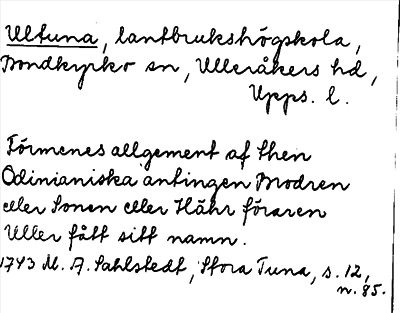 Ultuna, lantbrukshögskola,
Bondkyrko sn, Ulleråkers hd,
Upps. l.
Förmenes allgement af then
Odinianiska antingen Brodren
eller Sonen eller Håhr föraren
Uller fått sitt namn.
1743 M. A. Sahlstedt, Stora Tuna, s. 12,
n. 85.